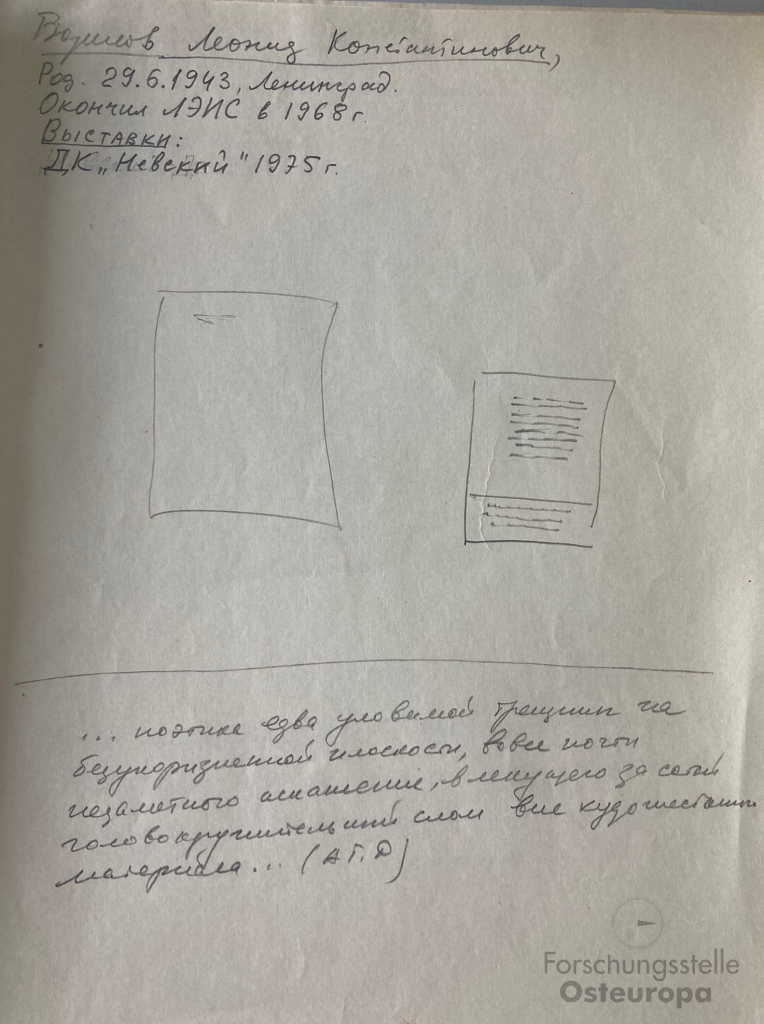 Борисов Леонид Константинович,
Род. 29.6.1943, Ленинград.
Окончил ЛЭИС в 1968 г.
Выставки:
ДК „Невский" 1975 г.
... поэтика едва уловимой трещины на
безукоризненной плоскости, почти
незаметного искажения, влекущего за собой
головокружительный слом вне
материала... (А Г. Д)
Forschungsstelle
Osteuropa